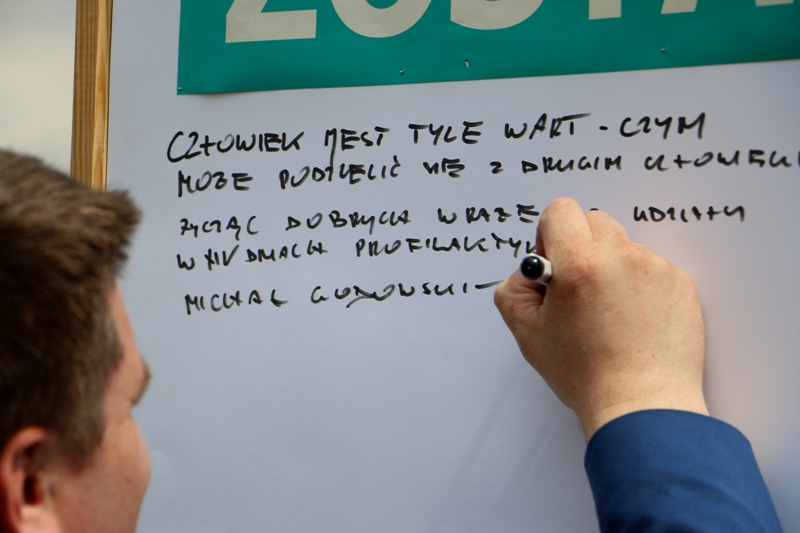 ZOSTA
CZŁOWIEK JEST TYLE WART - CZYM
MOŻE PODZIELIĆ SIĘ Z DRUGIM CZŁOWIEKI
ŻYCZĄC DOBRYCH WRAŻE UDZIAŁU
W XIV DNIACH PROFILAKTYK
MICHAŁ